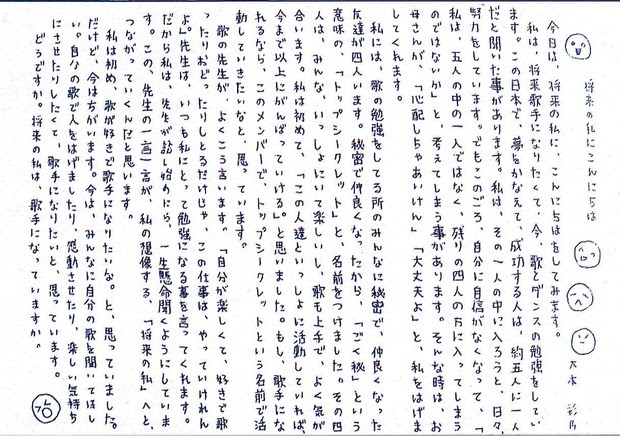 将来の私にこんにちは
大本 彩乃
今日は、将来の私に、こんにちはをしてみます。
私は、将来歌手になりたくて、今、歌とダンスの勉強をしてい
ます。この日本で、夢をかなえて、成功する人は、約五人に一人
だと聞いた事があります。私は、その一人の中に入ろうと、日々、
努力をしています。でもこのごろ、自分に自信がなくなって、「
私は、五人の中の一人ではなく、残りの四人の方に入ってしまう
のではないか」と、考えてしまう事があります。そんな時は、お
母さんが、「心配しちゃあいけん」「大丈夫よ」と、私をはげま
してくれます。
私には、歌の勉強をしてる所のみんなに秘密で、仲良くなった
友達が四人います。秘密で仲良くなったから、「ごく秘」という
意味の、「トップシークレット」と、名前をつけました。その四
人は、みんな、いっしょにいて楽しいし、歌も上手で、よく気が
合います。私は初めて、「この人達といっしょに活動していれば、
今まで以上にがんばっていける。」と思いました。もし、歌手にな
れるなら、このメンバーで、トップシークレットという名前で活
動していきたいなと、思っています。
歌の先生が、よくこう言います。「自分が楽しくて、好きで歌
ったりおどったりしとるだけじゃ、この仕事は、やっていけれん
よ。」先生は、いつも私にとって勉強になる事を言ってくれます。
だから私は、先生が話し始めたら、一生懸命聞くようにしていま
す。この、先生の一言一言が、私の想像する、「将来の私」へと、
つながっていくんだと思います。
私は初め、歌が好きで歌手になりたいな。と、思っていました。
だけど、今はちがいます。今は、みんなに自分の歌を聞いてほし
い。自分の歌で人をはげましたり、感動させたり、楽しい気持ち
にさせたりしたくて、歌手になりたいと、思っています。
どうですか。将来の私は、歌手になっていますか。